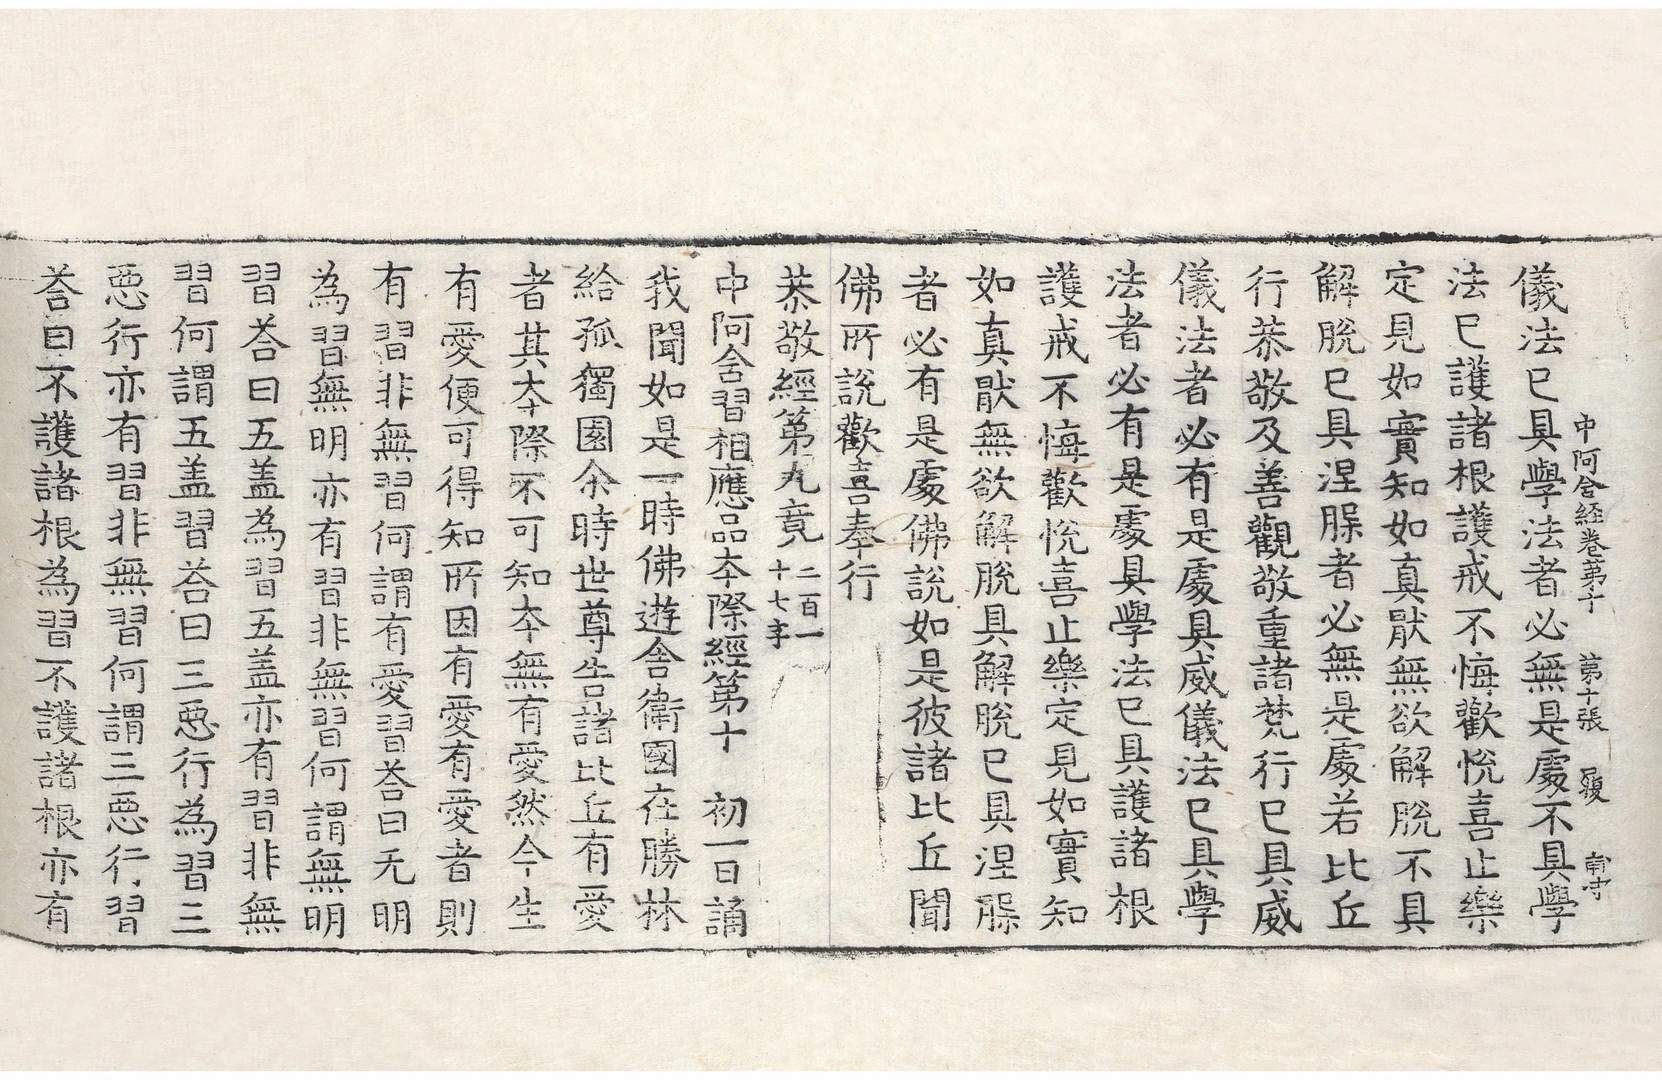 中阿含経卷苐十 第十張 履
儀法已具學法者必無是處不具學
法已護諸根護戒不悔歡悅喜止樂
定見如實知如真猒無欲解脫不具
解脫已具涅𦙁者必無是處若比丘
行恭敬及善觀敬重諸梵行已具威
儀法者必有是處具威儀法已具學
法者必有是處具學法已具護諸根
護戒不悔歡悅喜止樂定見如實知
如真猒無欲解脫具解脫已具涅𦙁
者必有是處佛說如是彼諸比丘聞
佛所說歡喜奉行
恭敬經第九竟 二百一十七字
中阿含習相應品夲際經第十 初一日誦
我聞如是一時佛遊舍衛國在勝林
給孤獨園尒時世尊告諸比丘有愛
者其夲際不可知夲無有愛然今生
有愛便可得知所因有愛有愛者則
有習非無習何謂有愛習荅曰无明
為習無明亦有習非無習何謂無明
習荅曰五盖為習五盖亦有習非無
習何謂五盖習荅曰三惡行為習三
惡行亦有習非無習何謂三惡行習
荅曰不護諸根為習不護諸根亦有